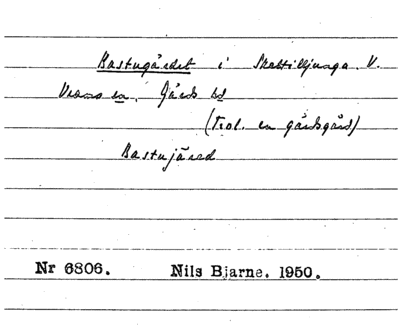 Bastugärdet i Skättiljunga. V.
Vrams sn. Gärds hd
(Trol. en gärdsgård)
Bastujäred
Nr 6806. Nils Bjarne. 1950.